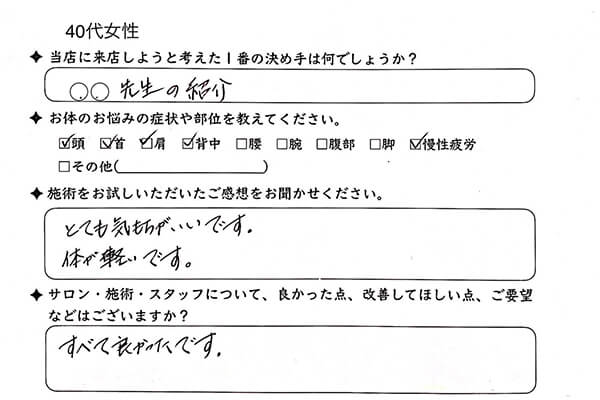 40代女性
✦当店に来店しようと考えた1番の決め手は何でしょうか？
○○先生の紹介
✦お体のお悩みの症状や部位を教えてください。
☑頭 ☑首 ☑肩 ☑背中 □腰 □腕 □腹部 □脚 ☑慢性疲労
□その他( )
✦施術をお試しいただいたご感想をお聞かせください。
とても気もちがいいです。
体が軽いです。
✦サロン・施術・スタッフについて、良かった点、改善してほしい点、ご要望
などはございますか？
すべて良かったです。